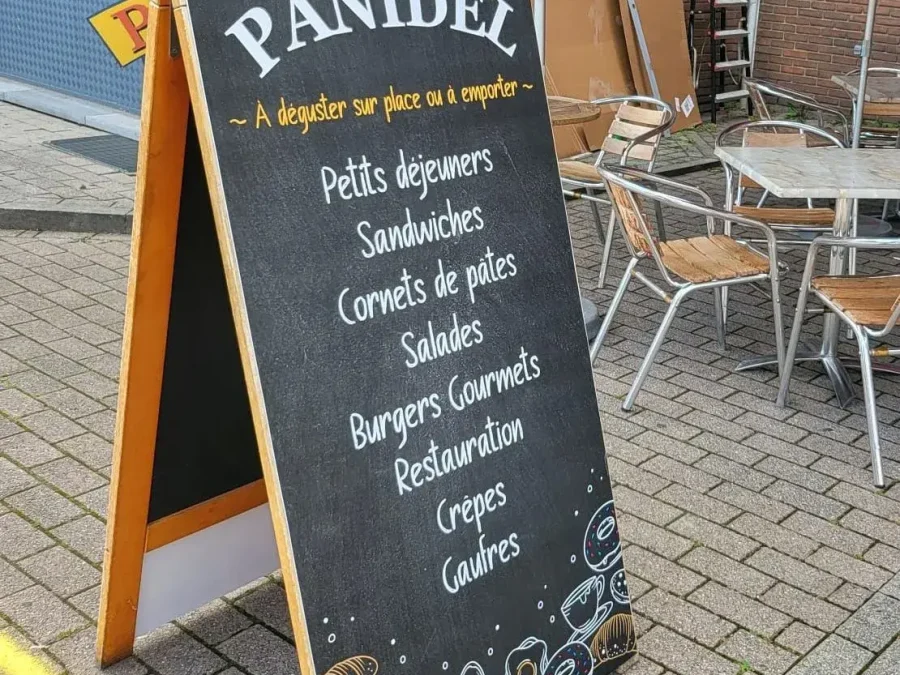 PANIDEL
~ À déguster sur place ou à emporter ~
Petits déjeuners
Sandwiches
Cornets de pâtes
Salades
Burgers Gourmets
Restauration
Crêpes
Gaufres